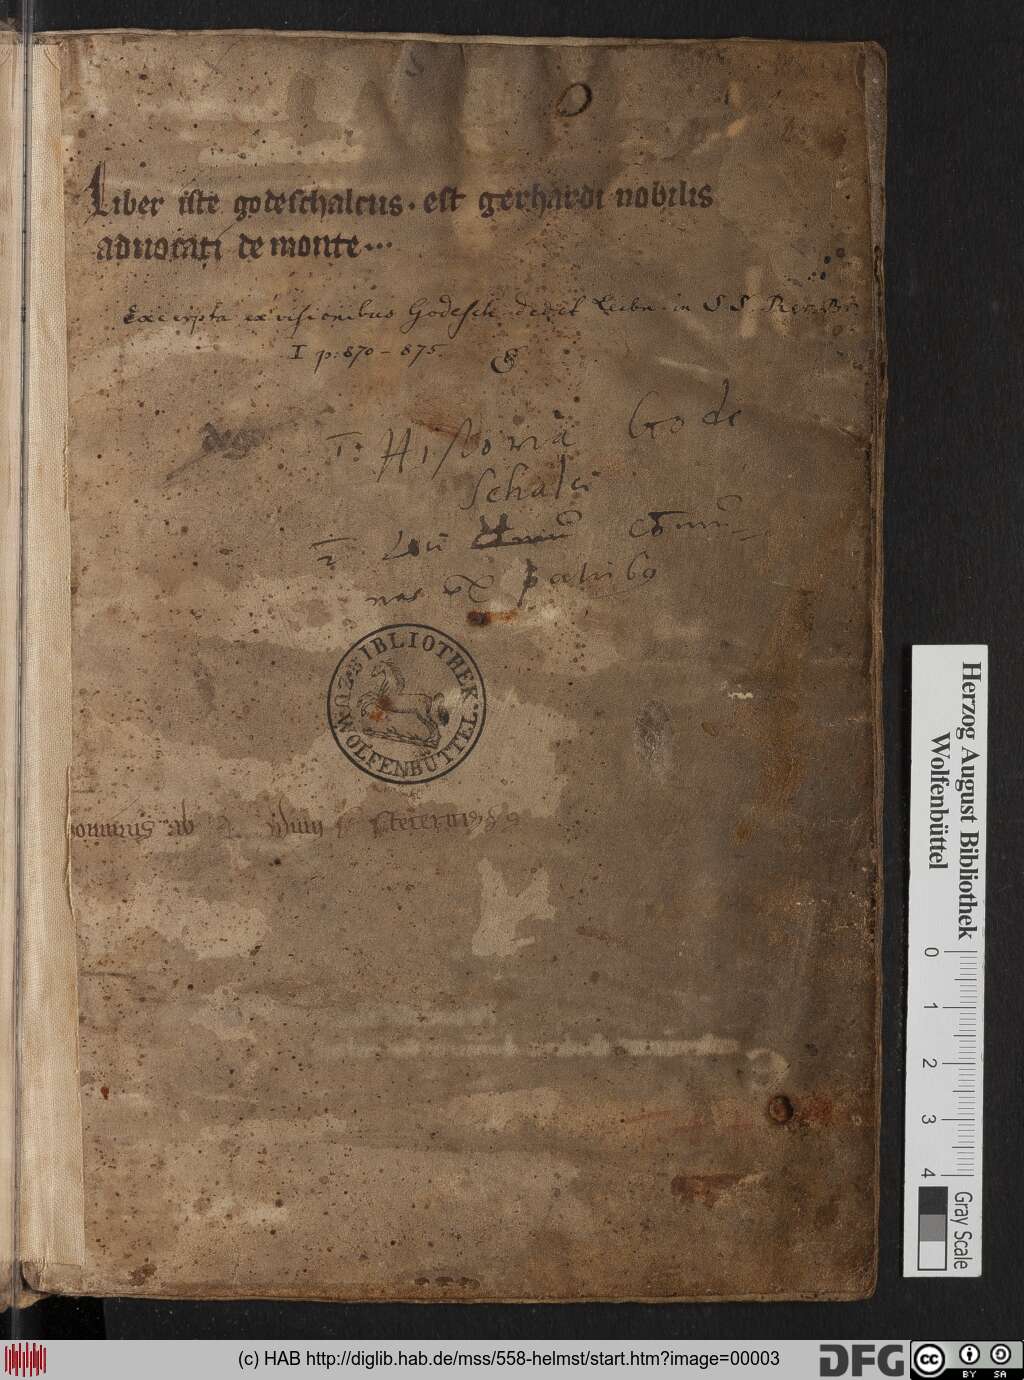 Liber iste godeschalcus. est gerhardi nobilis
aduocati de monte...
Excerpta ex visionibus Godesch. dedit Leibn. in SS. Rer. Br.
I p: 870 - 875.
1: Historia Gode
schalci
2 Loci
nes ex patribus
BIBLIOTHEK
WOLFENBÜTTEL
Herzog August Bibliothek
Wolfenbüttel
0 1 2 3 4
Gray Scale
(c) HAB http://diglib.hab.de/mss/558-helmst/start.htm?image=00003
DFG
cc BY SA